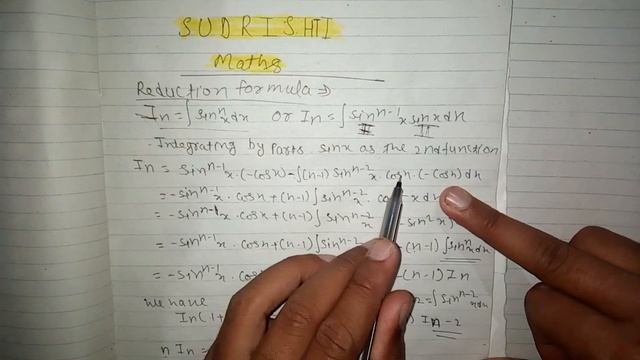 SUDRISHTI
Maths
Reduction formula ⇒
In = ∫ sinⁿx dx or In = ∫ sinⁿ⁻¹x sinx dx
I II
Integrating by parts sinx as the 2nd function
In = sinⁿ⁻¹x . (-cosx) - ∫(n-1) sinⁿ⁻²x . cosx . (-cosx) dx
= -sinⁿ⁻¹x . cosx + (n-1) ∫ sinⁿ⁻²x . x dx
= -sinⁿ⁻¹x . cosx + (n-1) ∫ sinⁿ⁻²x - sin²x)
= -sinⁿ⁻¹x . cosx + (n-1) ∫ sinⁿ⁻² - (n-1) ∫ sinⁿx dx
= -sinⁿ⁻¹x . cosx - (n-1) In
we have 2 = ∫ sinⁿ⁻²x dx
In (1+ ) In-2
n In =